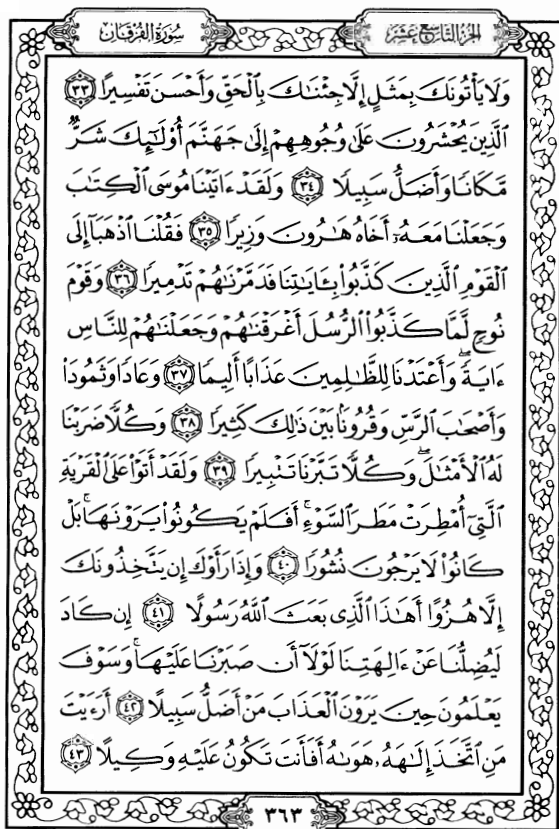 سُورَةُ الفُرْقَانِ
الجُزْءُ التَّاسِعَ عَشَرَ
وَلَا يَأْتُونَكَ بِمَثَلٍ إِلَّا جِئْنَٰكَ بِٱلْحَقِّ وَأَحْسَنَ تَفْسِيرًا ٣٣
ٱلَّذِينَ يُحْشَرُونَ عَلَىٰ وُجُوهِهِمْ إِلَىٰ جَهَنَّمَ أُو۟لَٰٓئِكَ شَرٌّ
مَّكَانًا وَأَضَلُّ سَبِيلًا ٣٤ وَلَقَدْ ءَاتَيْنَا مُوسَى ٱلْكِتَٰبَ
وَجَعَلْنَا مَعَهُۥٓ أَخَاهُ هَٰرُونَ وَزِيرًا ٣٥ فَقُلْنَا ٱذْهَبَآ إِلَى
ٱلْقَوْمِ ٱلَّذِينَ كَذَّبُوا۟ بِـَٔايَٰتِنَا فَدَمَّرْنَٰهُمْ تَدْمِيرًا ٣٦ وَقَوْمَ
نُوحٍ لَّمَّا كَذَّبُوا۟ ٱلرُّسُلَ أَغْرَقْنَٰهُمْ وَجَعَلْنَٰهُمْ لِلنَّاسِ
ءَايَةً ۖ وَأَعْتَدْنَا لِلظَّٰلِمِينَ عَذَابًا أَلِيمًا ٣٧ وَعَادًا وَثَمُودَا۟
وَأَصْحَٰبَ ٱلرَّسِّ وَقُرُونًۢا بَيْنَ ذَٰلِكَ كَثِيرًا ٣٨ وَكُلًّا ضَرَبْنَا
لَهُ ٱلْأَمْثَٰلَ ۖ وَكُلًّا تَبَّرْنَا تَتْبِيرًا ٣٩ وَلَقَدْ أَتَوْا۟ عَلَى ٱلْقَرْيَةِ
ٱلَّتِىٓ أُمْطِرَتْ مَطَرَ ٱلسَّوْءِ ۚ أَفَلَمْ يَكُونُوا۟ يَرَوْنَهَا ۚ بَلْ
كَانُوا۟ لَا يَرْجُونَ نُشُورًا ٤٠ وَإِذَا رَأَوْكَ إِن يَتَّخِذُونَكَ
إِلَّا هُزُوًا أَهَٰذَا ٱلَّذِى بَعَثَ ٱللَّهُ رَسُولًا ٤١ إِن كَادَ
لَيُضِلُّنَا عَنْ ءَالِهَتِنَا لَوْلَآ أَن صَبَرْنَا عَلَيْهَا ۚ وَسَوْفَ
يَعْلَمُونَ حِينَ يَرَوْنَ ٱلْعَذَابَ مَنْ أَضَلُّ سَبِيلًا ٤٢ أَرَءَيْتَ
مَنِ ٱتَّخَذَ إِلَٰهَهُۥ هَوَىٰهُ أَفَأَنتَ تَكُونُ عَلَيْهِ وَكِيلًا ٤٣
٣٦٣